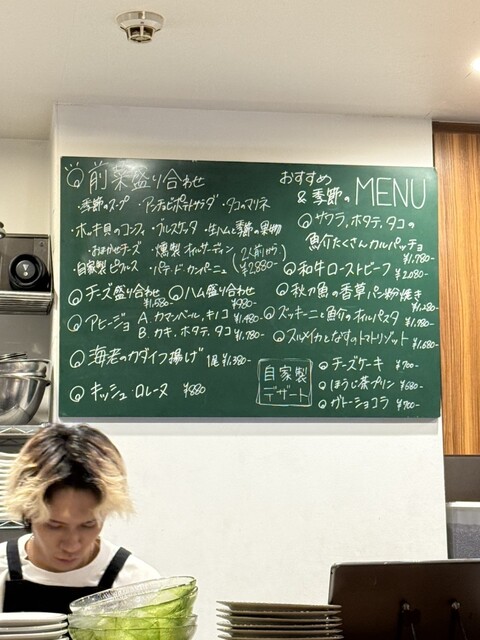 前菜盛り合わせ
・季節のスープ ・アンチョビポテトサラダ ・タコのマリネ
・ホッキ貝のコンフィ ・ブルスケッタ ・生ハムと季節の果物
・おまかせチーズ ・燻製オイルサーディン
・自家製ピクルス ・パテ・ド・カンパーニュ (2人前から) ¥2,880-
チーズ盛り合わせ ¥1,580- ハム盛り合わせ ¥980-
アヒージョ A. カマンベール、キノコ ¥1,480-
B. カキ、ホタテ、タコ ¥1,780-
海老のカダイフ揚げ 1尾 ¥1,380-
キッシュ・ロレーヌ ¥880
おすすめ
& 季節の MENU
サワラ、ホタテ、タコの
魚介たくさんカルパッチョ
¥1,780-
和牛ローストビーフ ¥2,080-
秋刀魚の香草パン粉焼き
¥1,280-
ズッキーニと魚介のオイルパスタ
¥1,780-
スルメイカとなすのトマトリゾット ¥1,680-
自家製
デザート
チーズケーキ ¥700-
ほうじ茶プリン ¥680-
ガトーショコラ ¥700-